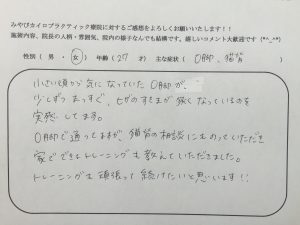 みやびカイロプラクティック療院に対するご感想をよろしくお願いいたします！！
施術内容、院長の人柄・雰囲気、院内の様子なんでも結構です。嬉しいコメント大歓迎です（*^_^*）
性別（ 男 ・ 女 ） 年齢（ 27 才） 主な症状（ O脚、猫背 ）
小さい頃から気になっていたO脚が、
少しずつまっすぐ、ヒザのすきまが狭くなっているのを
実感してます。
O脚で通ってますが、猫背の相談にものっていただき
家でできるトレーニングも教えていただきました。
トレーニングも頑張って続けたいと思います！！